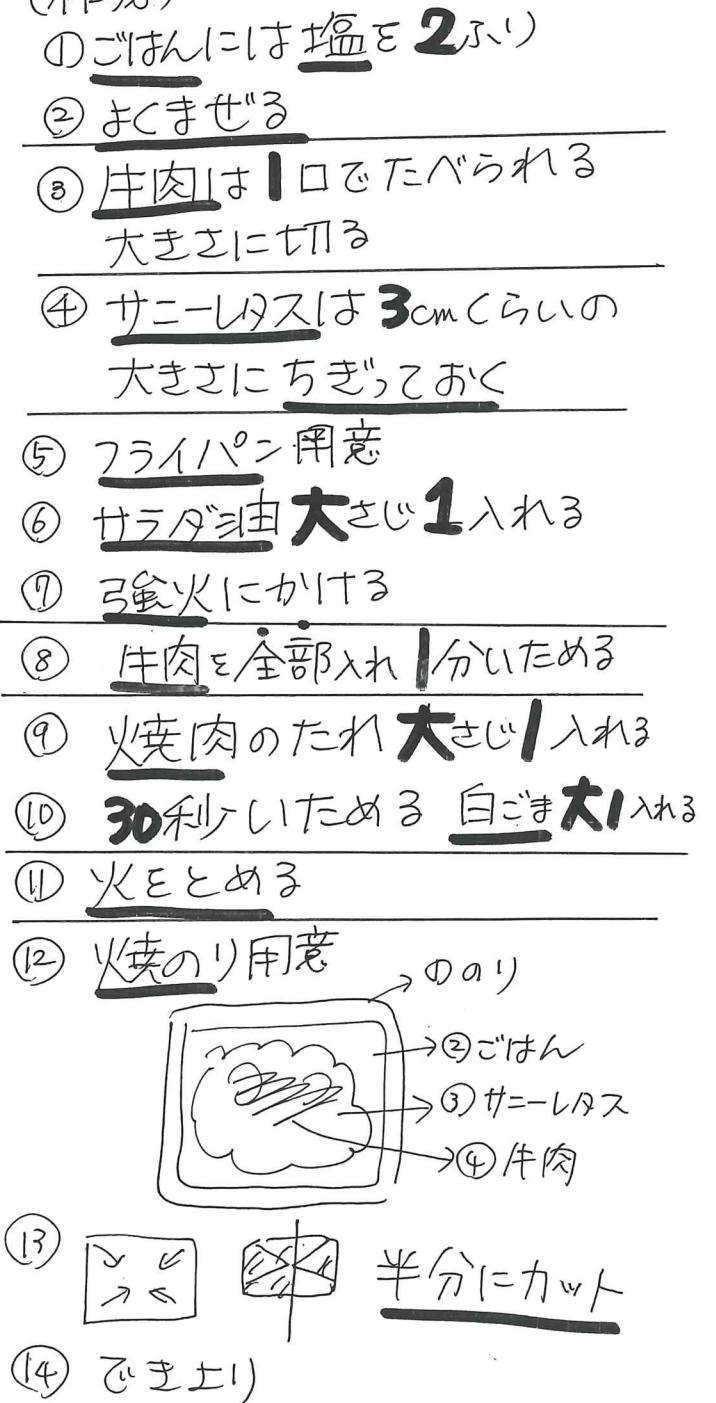 ①ごはんには塩を2ふり
②よくまぜる
③牛肉は1口でたべられる
大きさに切る
④サニーレタスは3cmくらいの
大きさにちぎっておく
⑤フライパン用意
⑥サラダ油大さじ1入れる
⑦強火にかける
⑧牛肉を全部入れ1分いためる
⑨焼肉のたれ大さじ1入れる
⑩30秒いためる 白ごま大1入れる
⑪火をとめる
⑫焼のり用意
①のり
②ごはん
③サニーレタス
④牛肉
⑬半分にカット
⑭でき上り